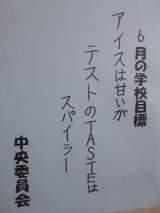 6月の学校目標
アイスは甘いが
テストのTASTEは
スパイシー
中央委員会